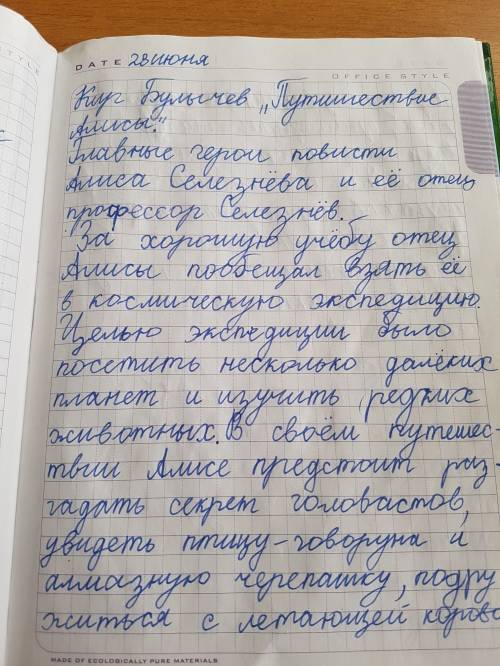 DATE 28 июня
OFFICE STYLE
Кир Булычев „Путишествие
Алисы."
Главные герои повисти
Алиса Селезнёва и её отец
профессор Селезнёв.
За хорошую учёбу отец
Алисы пообещал взять её
в космическую экспедицию.
Целью экспедиции было
посетить несколько далёких
планет и изучить редких
животных. В своём путешес-
твии Алисе предстоит раз-
гадать секрет головастов,
увидеть птицу-говоруна и
алмазную черепашку, подру
житься с летающей корово
MADE OF ECOLOGICALLY PURE MATERIALS